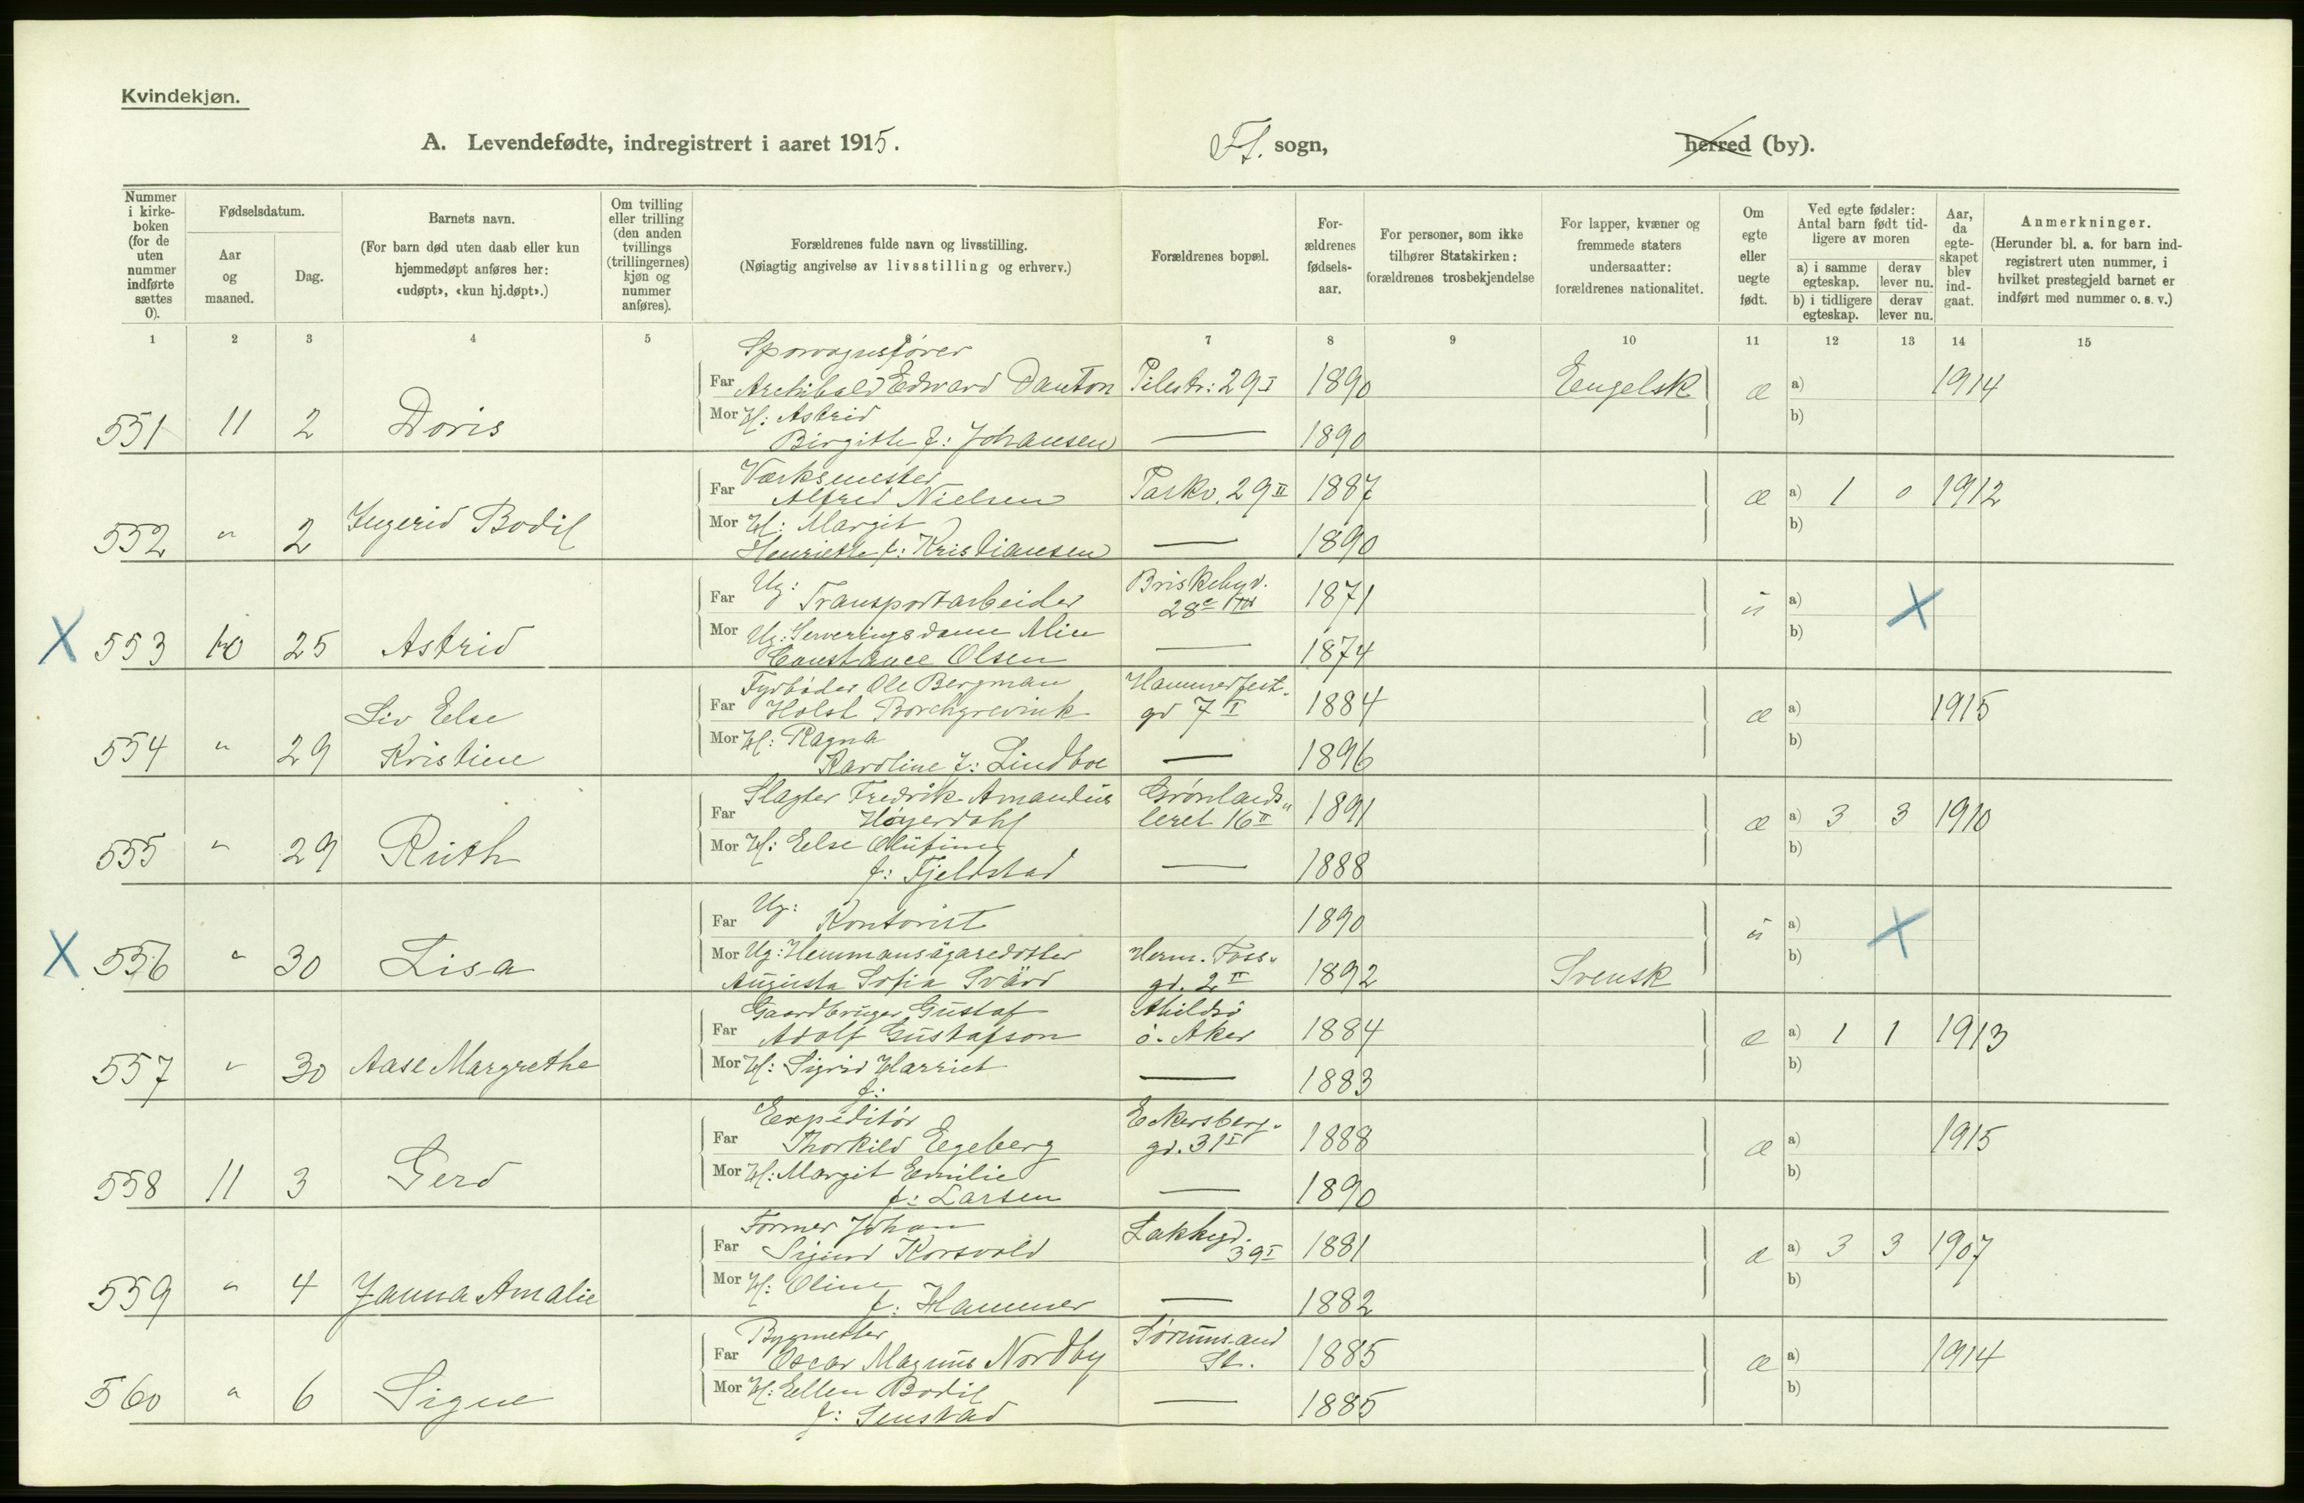 Kvindekjøn.
A. Levendefødte, indregistrert i aaret 1915.
sogn,
herred (by).
Nummer i kirkeboken (for de uten nummer indførte sættes 0).
Fødselsdatum.
Aar og maaned.
Dag.
Barnets navn.
(For barn død uten daab eller kun hjemmedøpt anføres her: «udøpt», «kun hj.døpt».)
Om tvilling eller trilling (den anden tvillings (trillingernes) kjøn og nummer anføres).
Forældrenes fulde navn og livsstilling.
(Nøiagtig angivelse av livsstilling og erhverv.)
Forældrenes bopæl.
Forældrenes fødselsaar.
For personer, som ikke tilhører Statskirken: forældrenes trosbekjendelse
For lapper, kvæner og fremmede staters undersaatter: forældrenes nationalitet.
Om egte eller uegte født.
Ved egte fødsler: Antal barn født tidligere av moren
a) i samme egteskap.
derav lever nu.
b) i tidligere egteskap.
derav lever nu.
Aar, da egteskapet blev indgaat.
Anmerkninger.
(Herunder bl. a. for barn indregistrert uten nummer, i hvilket prestegjeld barnet er indført med nummer o. s. v.)
1 2 3 4 5 7 8 9 10 11 12 13 14 15
Sporvognsfører
Far Archibald Edward Danton Pilestr: 29 I 1890 Engelsk æ a) 1914
Mor H: Astrid b)
551 11 2 Doris Birgitte f: Johansen — 1890
Værksmester
Far Alfred Nielsen Parkv. 29 II 1887 æ a) 1 0 1912
Mor H: Margit b)
552 " 2 Ingerid Bodil Henriette f: Kristiansen — 1890
Far Ug: Transportarbeider Briskebyv. 28 1871 u a) X
Mor Ug: Serveringsdame Alin b)
X 553 10 25 Astrid Constance Olsen — 1874
Fyrbøder Ole Bergman Hammerfest-
Far Holst Borchgrevink gd 7 I 1884 æ a) 1915
Mor H: Ragna b)
554 " 29 Liv Else Kristine Karoline f: Lindboe — 1896
Slagter Fredrik Amandus Grønlands-
Far Høyerdahl leret 16 II 1891 æ a) 3 3 1910
Mor H: Else Olufine b)
555 " 29 Ruth f: Fjeldstad — 1888
Far Ug: Kontorist 1890 u a) X
Mor Ug: Hemmansägaredotter Herm. Foss- b)
X 556 " 30 Lisa Augusta Sofia Svärd gd. 2 II 1892 Svensk
Gaardbruger Gustaf Abildsø
Far Adolf Gustafson ö. Aker 1884 æ a) 1 1 1913
Mor H: Sigrid Harriet b)
557 " 30 Aase Margrethe f: — 1883
Expeditör Eckersberg-
Far Thorkild Egeberg gd. 31 I 1888 æ a) 1915
Mor H: Margit Emilie b)
558 11 3 Gerd f: Larsen — 1890
Former Johan
Far Sigurd Korsvold Lakkegd. 39 I 1881 æ a) 3 3 1907
Mor H: Oline b)
559 " 4 Janna Amalie f: Hammer — 1882
Bygmester Sørumsand
Far Oscar Magnus Nordby St. 1885 æ a) 1914
Mor H: Ellen Bodil b)
560 " 6 Signe f: Senstad — 1885